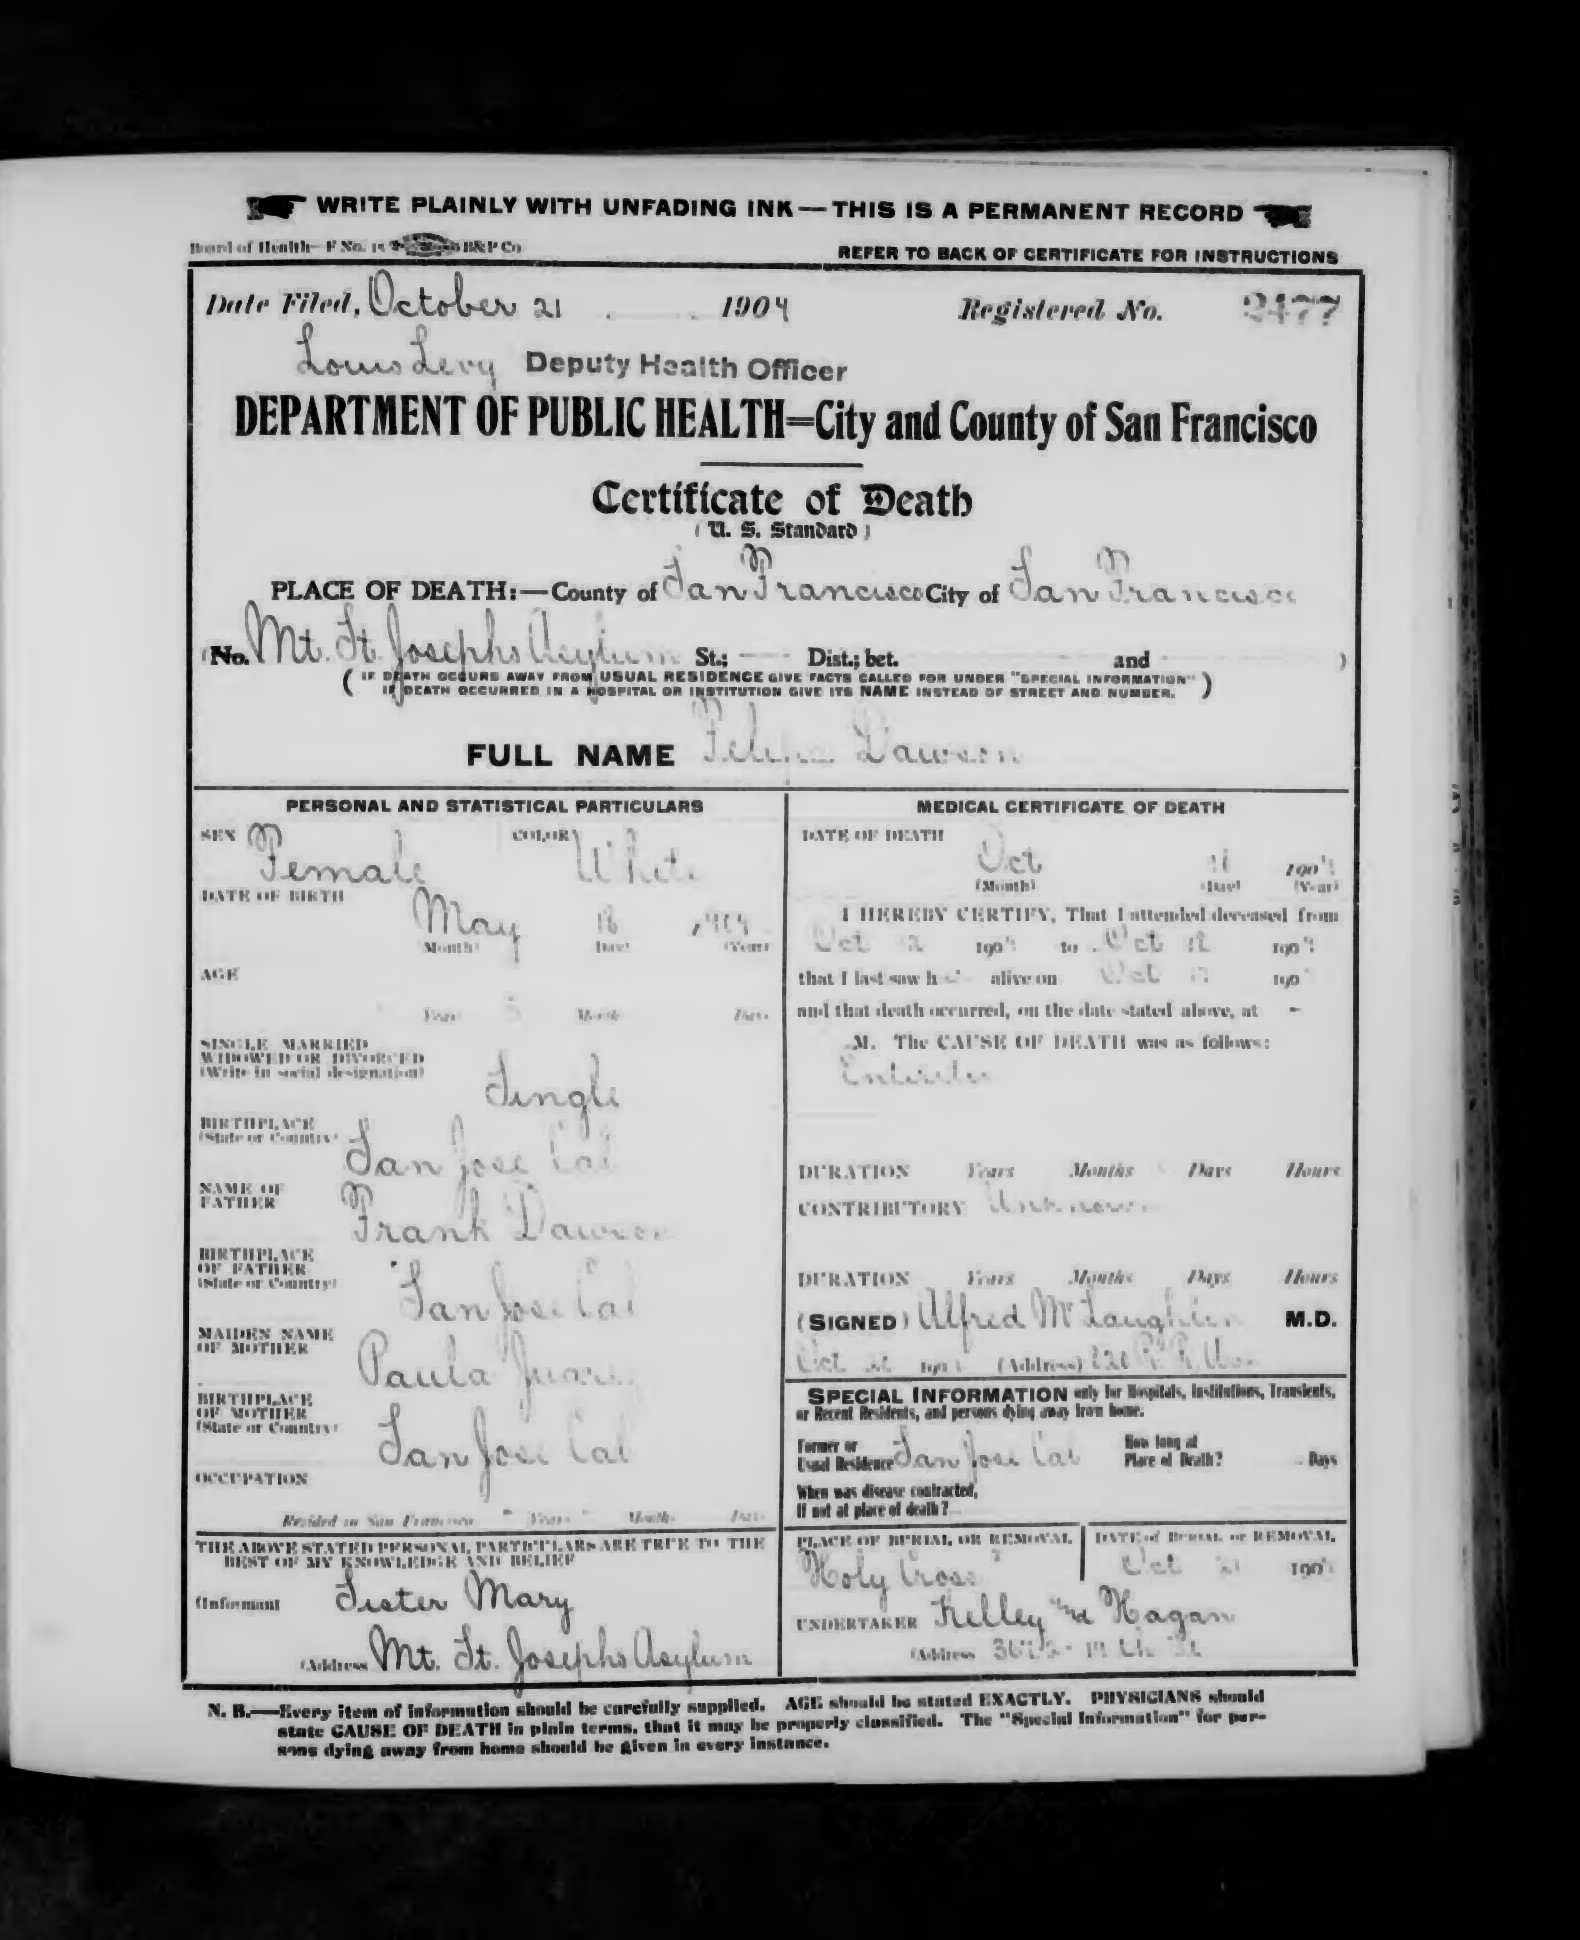 WRITE PLAINLY WITH UNFADING INK — THIS IS A PERMANENT RECORD
Board of Health—F No. 15 B&P Co
REFER TO BACK OF CERTIFICATE FOR INSTRUCTIONS
Date Filed, October 21 1904 Registered No. 2477
Louis Levy Deputy Health Officer
DEPARTMENT OF PUBLIC HEALTH=City and County of San Francisco
Certificate of Death
(U. S. Standard)
PLACE OF DEATH:—County of San Francisco City of San Francisco
(No. Mt. St. Josephs Asylum St.; Dist.; bet. and )
( IF DEATH OCCURS AWAY FROM USUAL RESIDENCE GIVE FACTS CALLED FOR UNDER "SPECIAL INFORMATION"
IF DEATH OCCURRED IN A HOSPITAL OR INSTITUTION GIVE ITS NAME INSTEAD OF STREET AND NUMBER. )
FULL NAME Dawson
PERSONAL AND STATISTICAL PARTICULARS
SEX Female COLOR White
DATE OF BIRTH
May 18
(Month) (Day) (Year)
AGE
Years 5 Months Days
SINGLE MARRIED
WIDOWED OR DIVORCED
(Write in social designation)
Single
BIRTHPLACE
(State or Country)
San Jose Cal
NAME OF
FATHER
Frank Dawson
BIRTHPLACE
OF FATHER
(State or Country)
San Jose Cal
MAIDEN NAME
OF MOTHER
Paula Juarez
BIRTHPLACE
OF MOTHER
(State or Country)
San Jose Cal
OCCUPATION
Resided in San Francisco Years Months Days
THE ABOVE STATED PERSONAL PARTICULARS ARE TRUE TO THE
BEST OF MY KNOWLEDGE AND BELIEF
(Informant Sister Mary
(Address Mt. St. Josephs Asylum
MEDICAL CERTIFICATE OF DEATH
DATE OF DEATH
Oct 1904
(Month) (Day) (Year)
I HEREBY CERTIFY, That I attended deceased from
Oct 1904 to Oct 1904
that I last saw h alive on Oct 190
and that death occurred, on the date stated above, at -
M. The CAUSE OF DEATH was as follows:
DURATION Years Months Days Hours
CONTRIBUTORY Unknown
DURATION Years Months Days Hours
(SIGNED) Alfred McLaughlin M.D.
Oct 190 (Address)
SPECIAL INFORMATION only for Hospitals, Institutions, Transients,
or Recent Residents, and persons dying away from home.
Former or
Usual Residence San Jose Cal
How long at
Place of Death? Days
When was disease contracted,
If not at place of death?
PLACE OF BURIAL OR REMOVAL
Holy Cross
DATE of BURIAL or REMOVAL
Oct 21 1904
UNDERTAKER Kelley and Hagan
(Address
N. B.—Every item of information should be carefully supplied. AGE should be stated EXACTLY. PHYSICIANS should
state CAUSE OF DEATH in plain terms, that it may be properly classified. The "Special Information" for per-
sons dying away from home should be given in every instance.